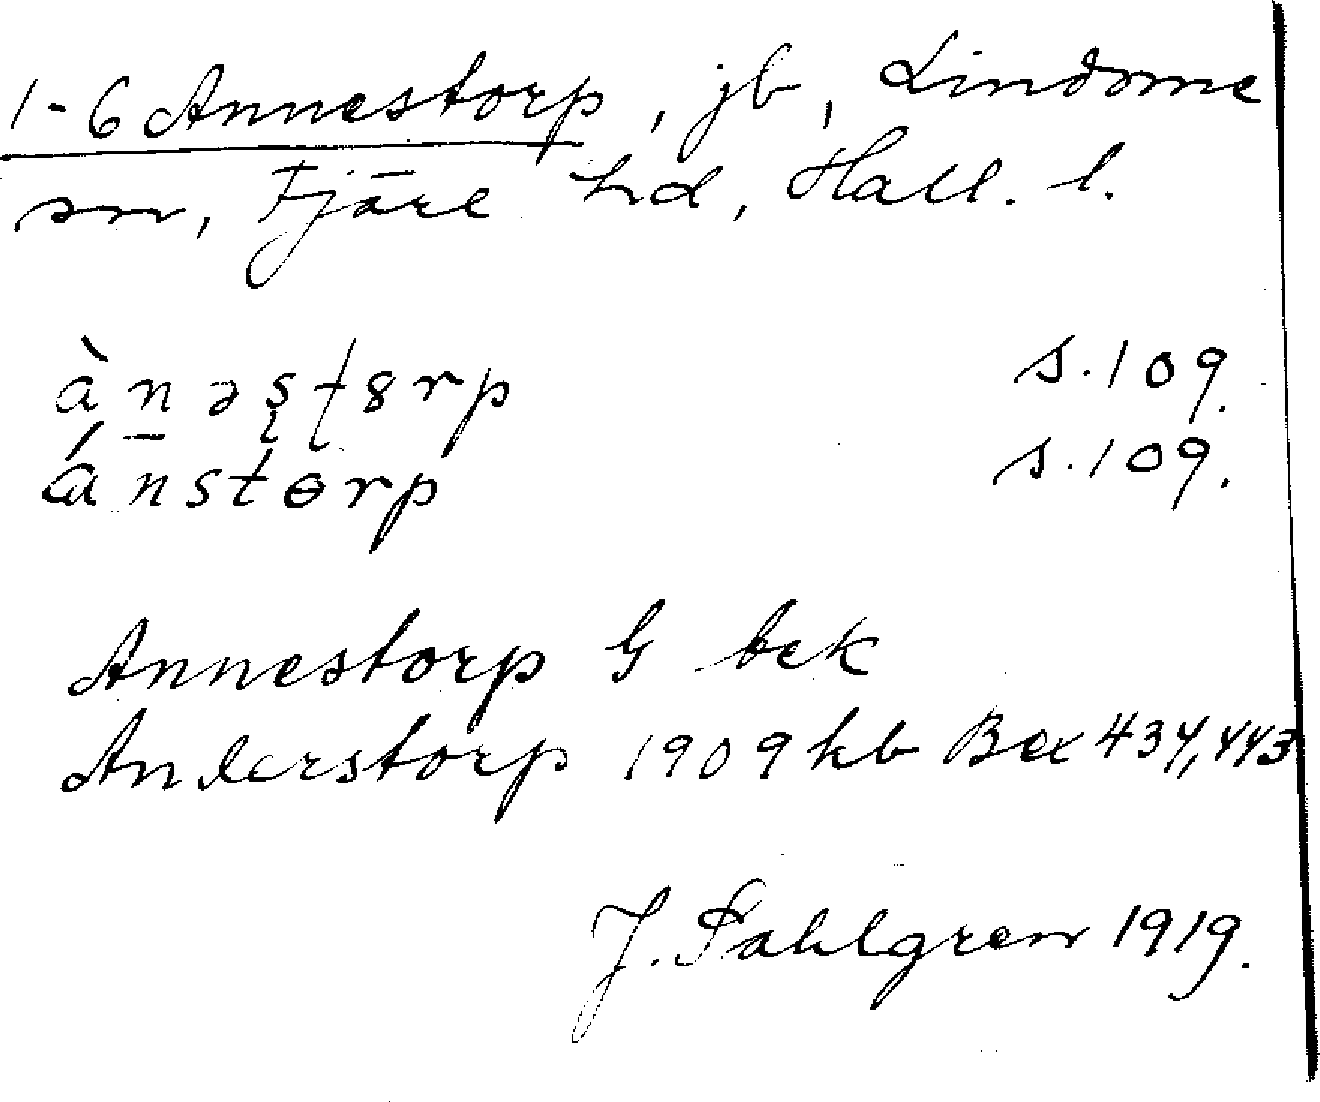 1-6 Annestorp, jb, Lindome
sn, Fjäre hd, Hall. l.
ànəs̨t̨8rp s.109.
án̄stɵrp s.109.
Annestorp G bek
Anderstorp 1909 kb Bex 434, 443
J. Sahlgren 1919.